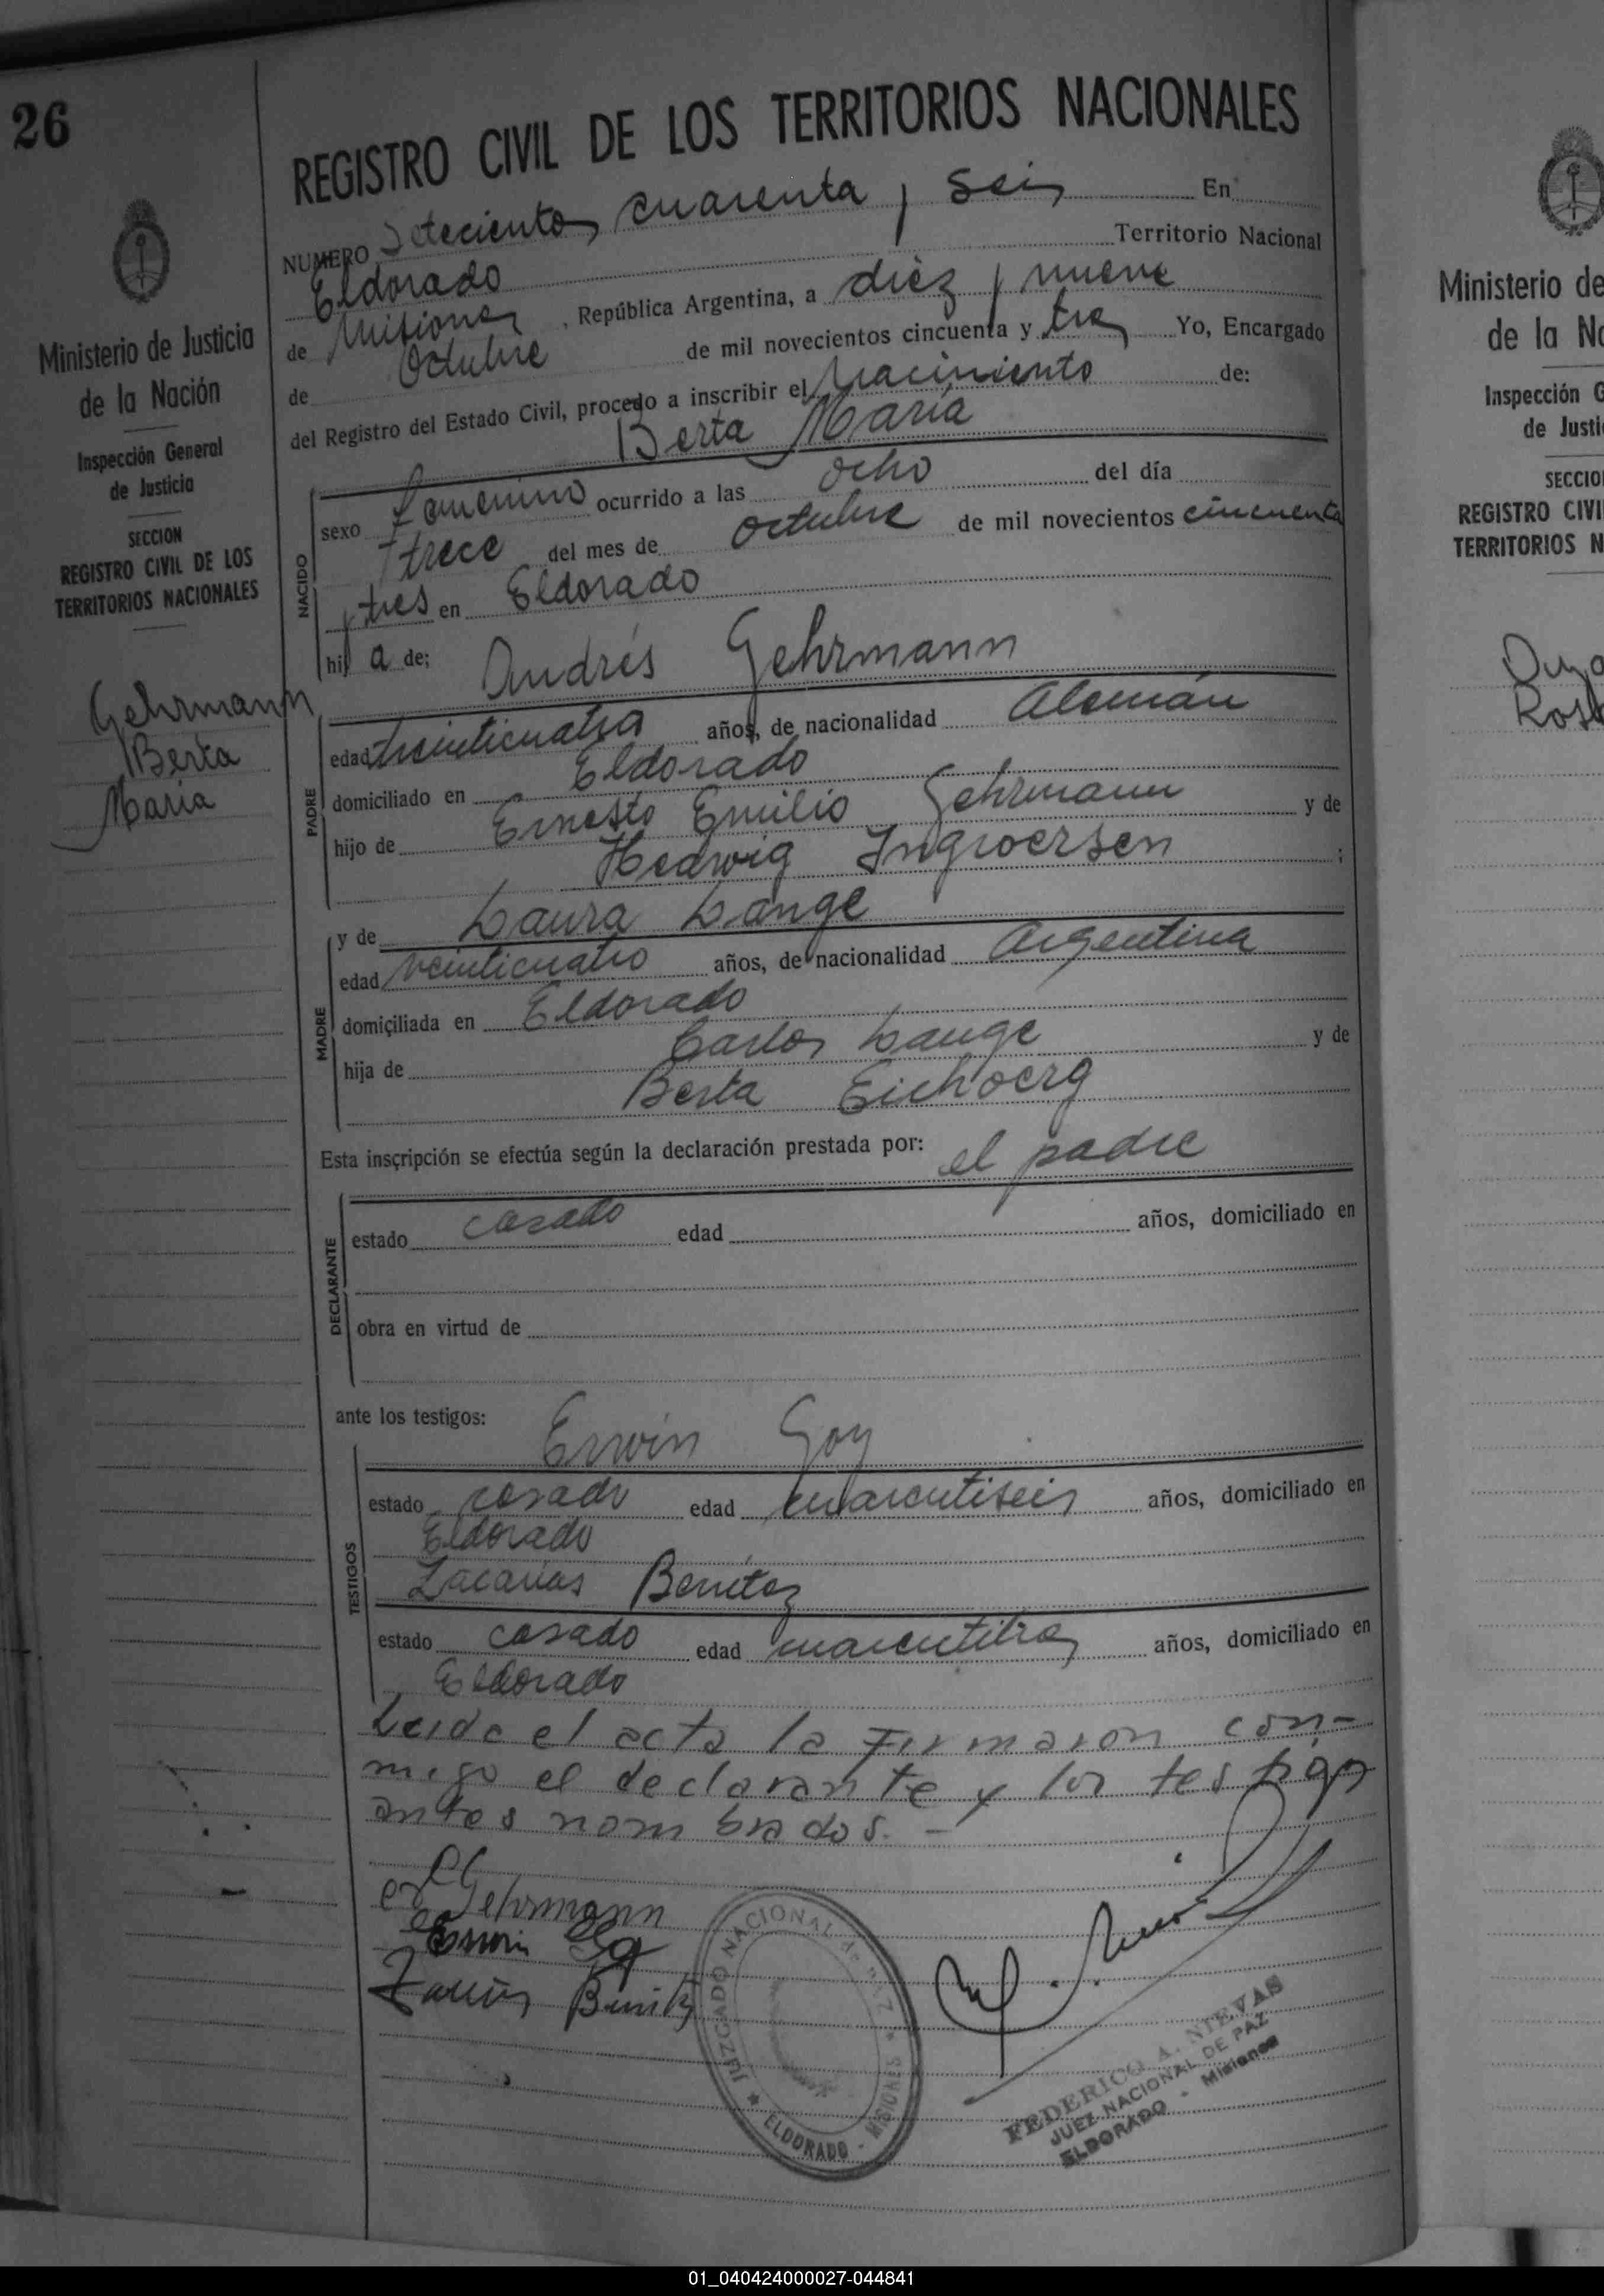 26
Ministerio de Justicia
de la Nación
Inspección General
de Justicia
SECCION
REGISTRO CIVIL DE LOS
TERRITORIOS NACIONALES
Gehrmann
Berta
María
REGISTRO CIVIL DE LOS TERRITORIOS NACIONALES
NUMERO Setecientos cuarenta y seis En
Eldorado Territorio Nacional
de Misiones, República Argentina, a diez y nueve
de Octubre de mil novecientos cincuenta y tres Yo, Encargado
del Registro del Estado Civil, procedo a inscribir el Nacimiento de:
Berta María
NACIDO
sexo femenino ocurrido a las ocho del día
trece del mes de octubre de mil novecientos cincuenta
y tres en Eldorado
hij a de; Andrés Gehrmann
PADRE
edad años, de nacionalidad Alemán
domiciliado en Eldorado
hijo de Ernesto Emilio Gehrmann y de
Hedwig Ingwersen ;
MADRE
y de Laura Lange
edad veinticuatro años, de nacionalidad Argentina
domiciliada en Eldorado
hija de Carlos Lange y de
Berta
Esta inscripción se efectúa según la declaración prestada por: el padre
DECLARANTE
estado casado edad años, domiciliado en
obra en virtud de
ante los testigos: Erwin Goy
TESTIGOS
estado casado edad cuarentiseis años, domiciliado en
Eldorado
Zacarías Benítez
estado casado edad cuarentitres años, domiciliado en
Eldorado
Leida el acta la firmaron con-
migo el declarante y los testigos
antes nombrados. -
Gehrmann
Erwin Goy
JUZGADO NACIONAL DE PAZ
ELDORADO - MISIONES
FEDERICO A. NIEVAS
JUEZ NACIONAL DE PAZ
ELDORADO - Misiones
Ministerio de
de la Na
Inspección G
de Justi
SECCIO
REGISTRO CIVI
TERRITORIOS N
01_040424000027-044841